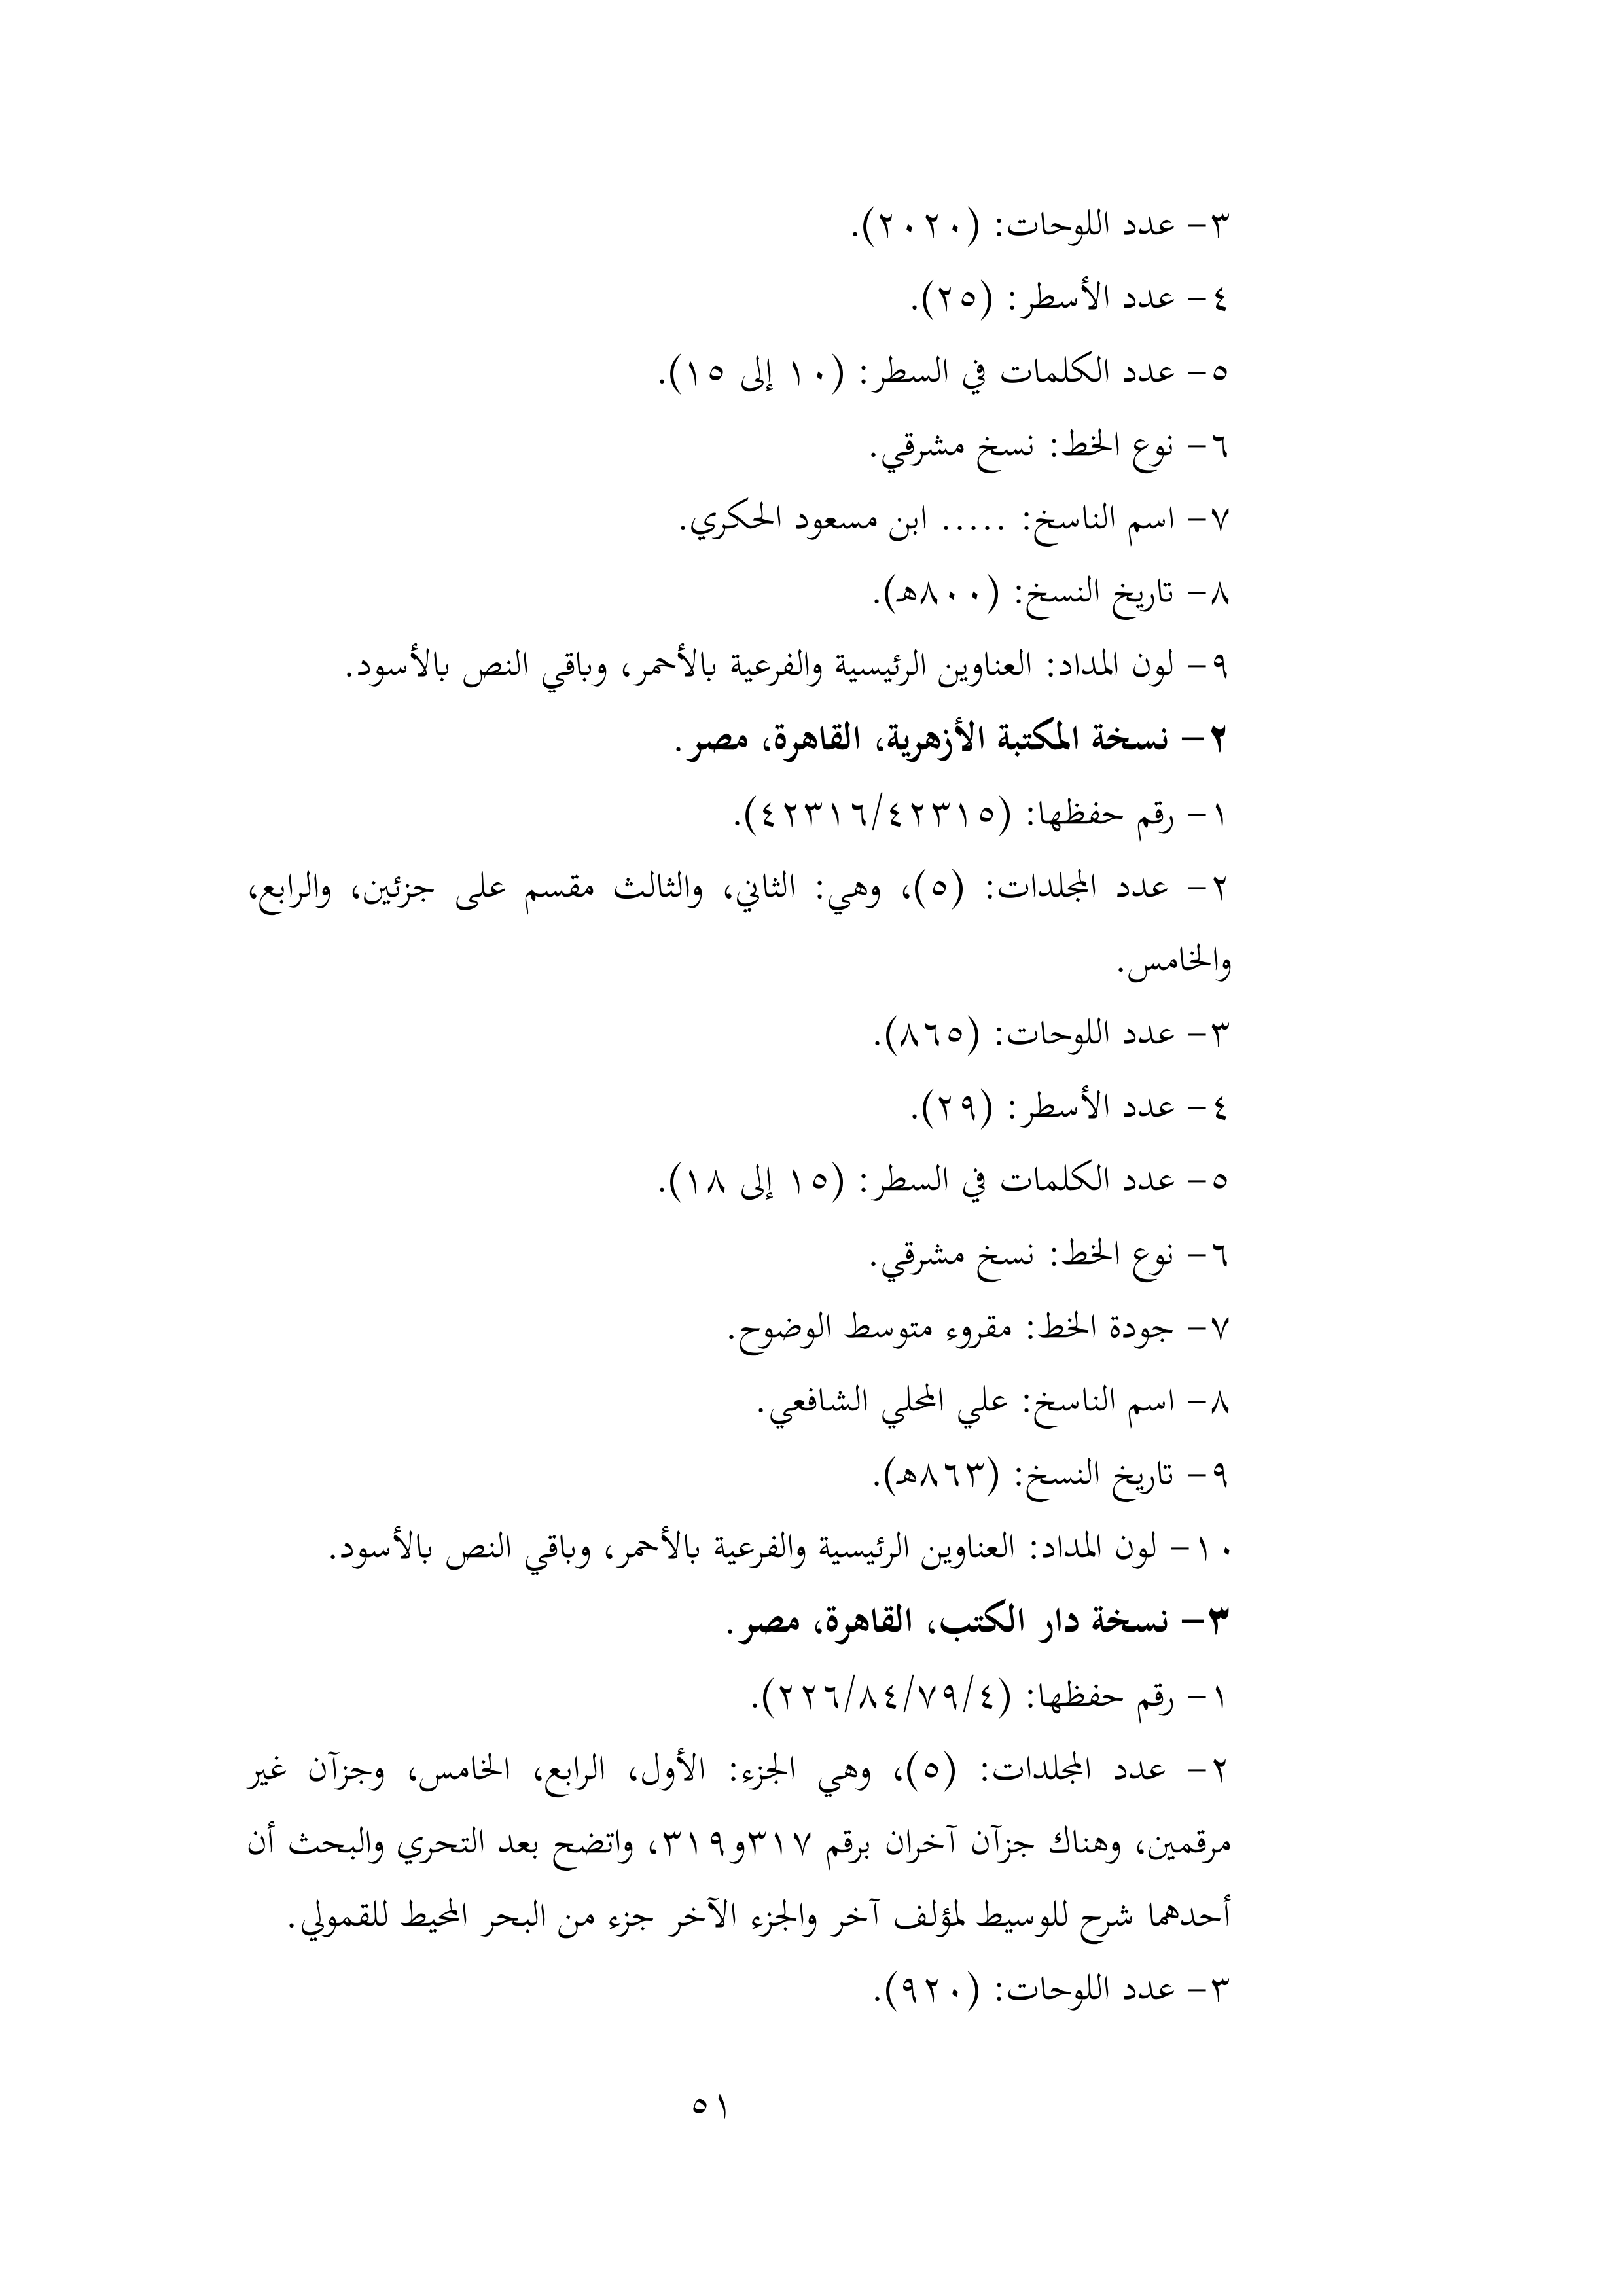 ٣- عدد اللوحات: (٢٠٢٠).
٤- عدد الأسطر: (٢٥).
٥- عدد الكلمات في السطر: (١٠ إلى ١٥).
٦- نوع الخط: نسخ مشرقي.
٧- اسم الناسخ: ..... ابن مسعود الحكري.
٨- تاريخ النسخ: (٨٠٠هـ).
٩- لون المداد: العناوين الرئيسية والفرعية بالأحمر، وباقي النص بالأسود.
٢- نسخة المكتبة الأزهرية، القاهرة، مصر.
١- رقم حفظها: (٤٢٣١٦/٤٢٣١٥).
٢- عدد المجلدات: (٥)، وهي: الثاني، والثالث مقسم على جزئين، والرابع،
والخامس.
٣- عدد اللوحات: (٨٦٥).
٤- عدد الأسطر: (٢٩).
٥- عدد الكلمات في السطر: (١٥ إلى ١٨).
٦- نوع الخط: نسخ مشرقي.
٧- جودة الخط: مقروء متوسط الوضوح.
٨- اسم الناسخ: علي المحلي الشافعي.
٩- تاريخ النسخ: (٨٦٣هـ).
١٠- لون المداد: العناوين الرئيسية والفرعية بالأحمر، وباقي النص بالأسود.
٣- نسخة دار الكتب، القاهرة، مصر.
١- رقم حفظها: (٢٢٦/٨٤/٧٩/٤).
٢- عدد المجلدات: (٥)، وهي الجزء: الأول، الرابع، الخامس، وجزآن غير
مرقمين، وهناك جزآن آخران برقم ٣١٧و٣١٩، واتضح بعد التحري والبحث أن
أحدهما شرح للوسيط لمؤلف آخر والجزء الآخر جزء من البحر المحيط للقمولي.
٣- عدد اللوحات: (٩٢٠).
٥١